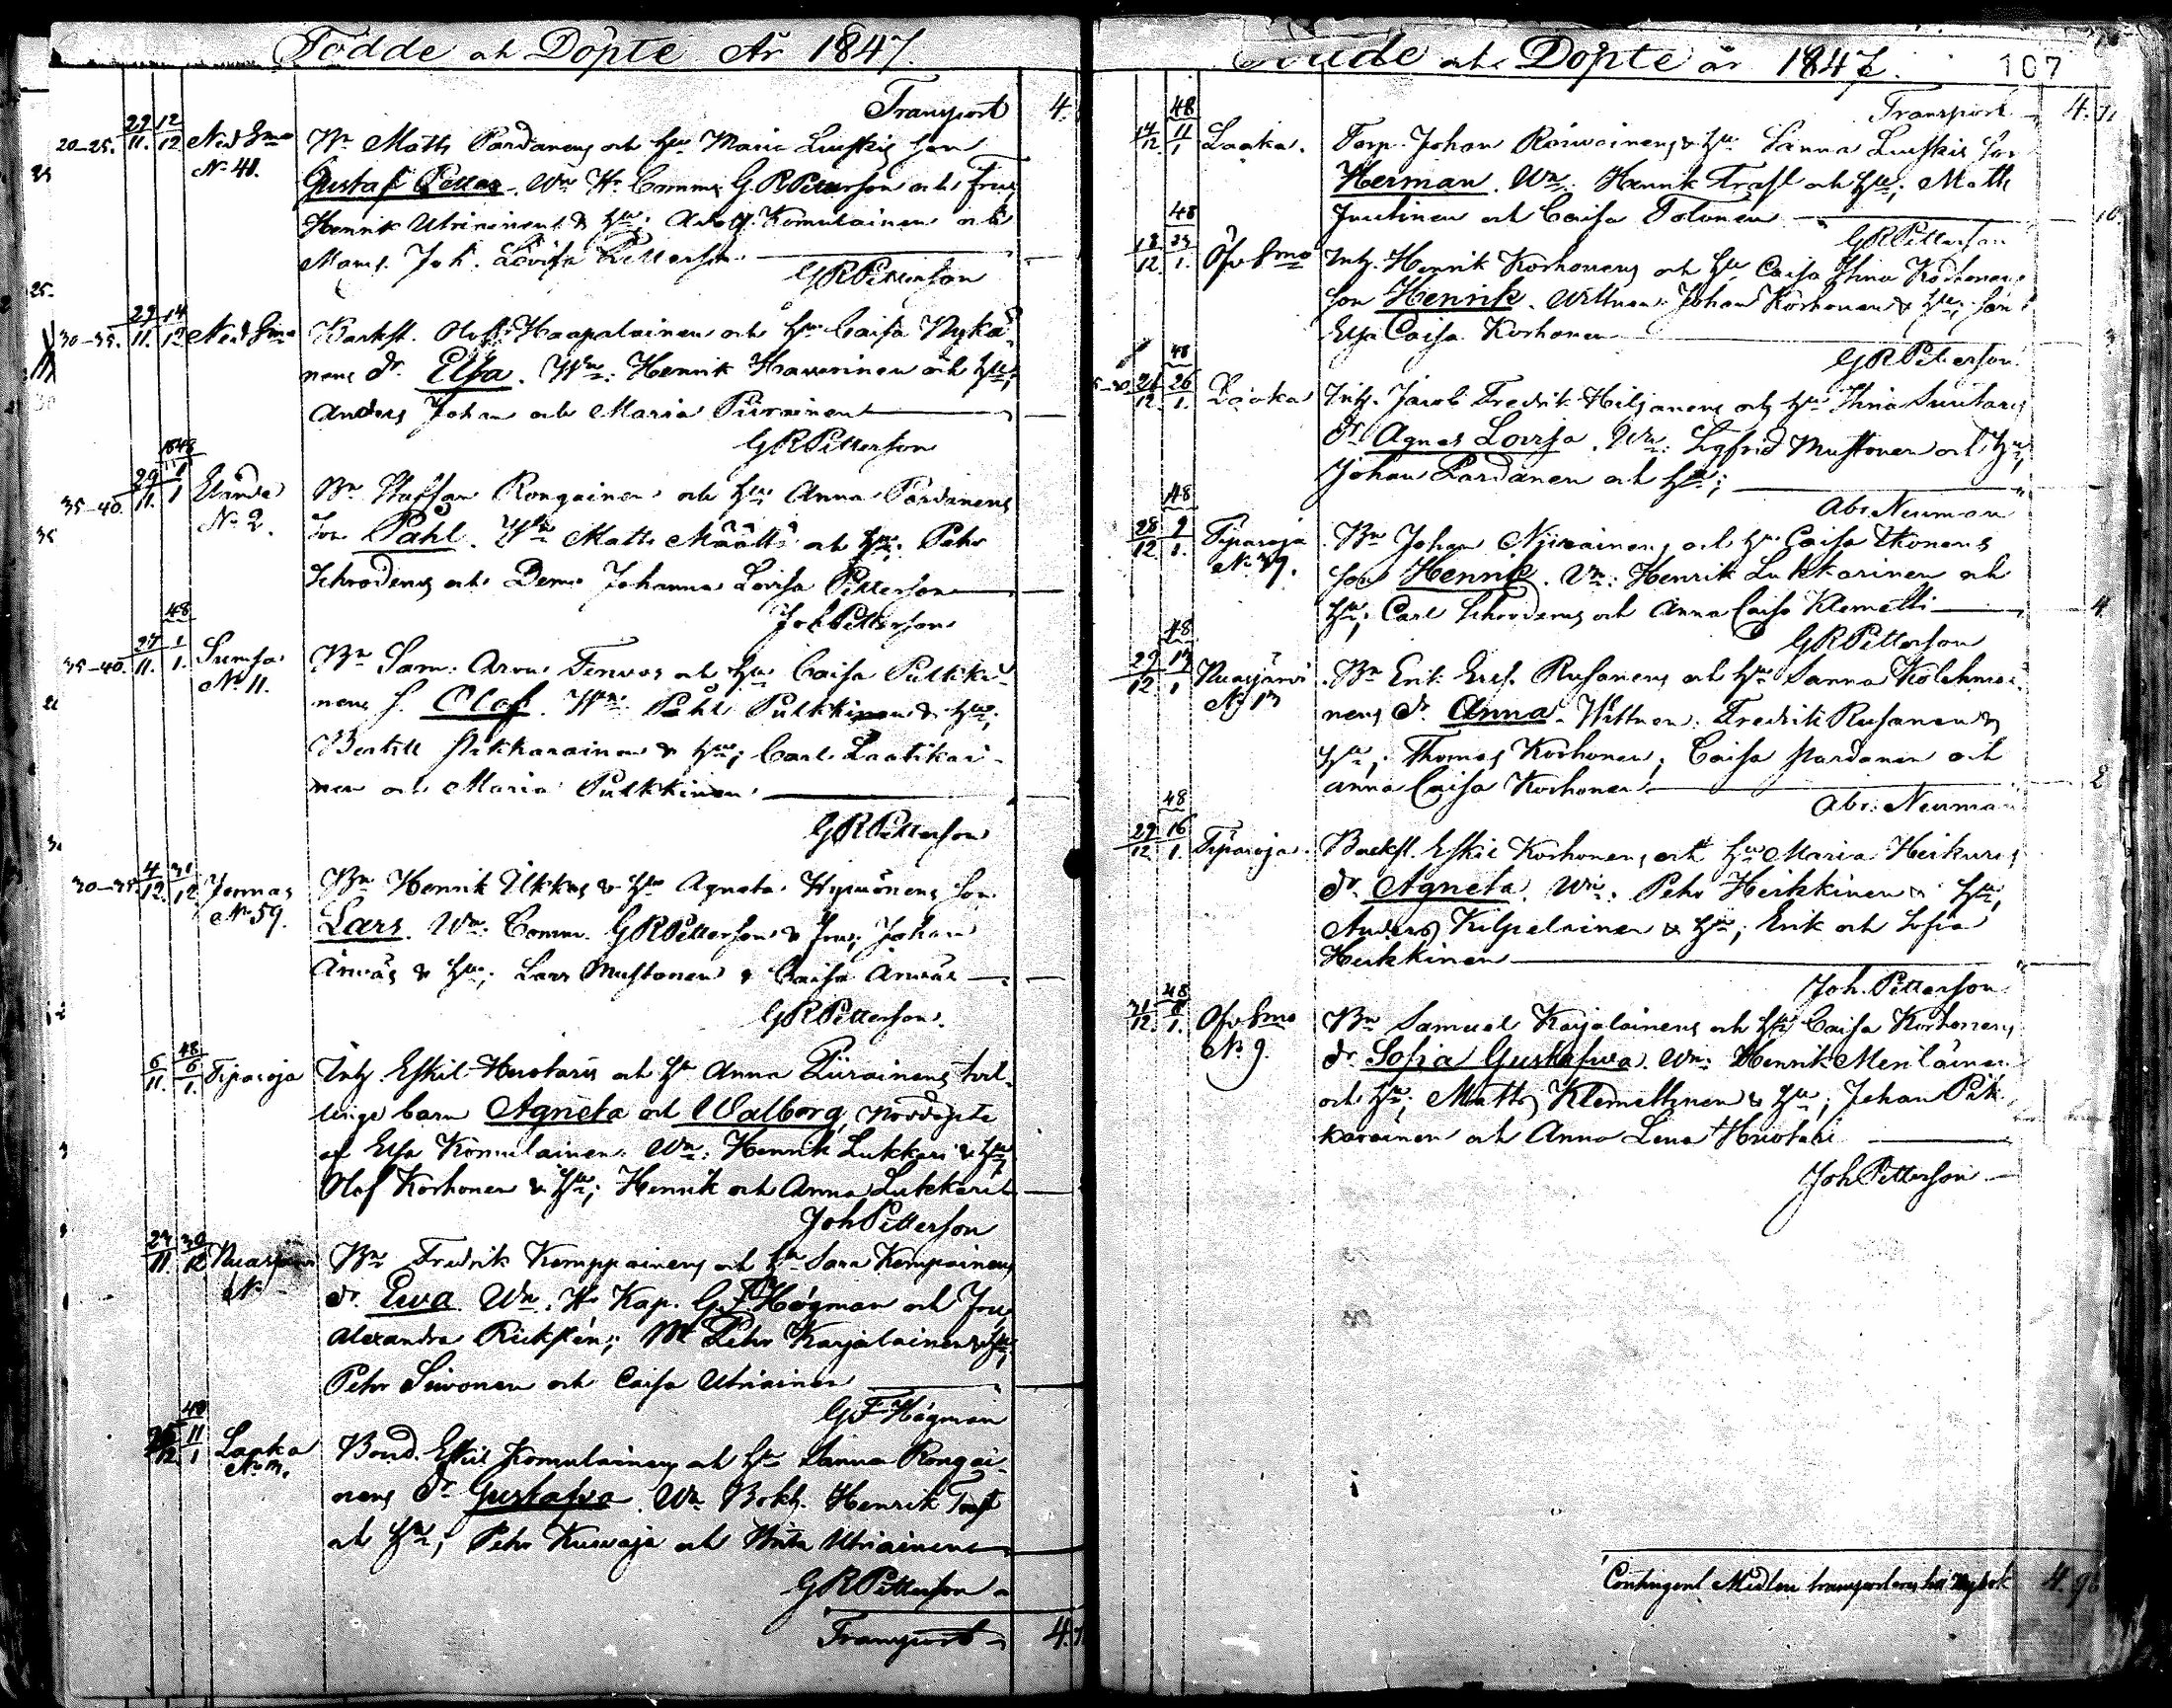 Födde och Döpte År 1847.
Transport 4.
20-25. 29/11. 12/12 Ned Smo Bn Matts Pardanens och hu Maria Luuskis son
No 41. Gustaf Petter. Wn Hr Comm. G.R. Petterson och Fru,
Henrik Utriainens & hu; Adolf Komulainen och
Mams. Joh. Lovisa Petterson.
GRPetterson
30-35. 29/11. 14/12 Ned Smo Backst. Olof Haapalainens och hu Caisa Nykä-
nens dr. Elsa. Wn: Henrik Haverinen och hu;
Anders Johan och Maria Piirainen
GRPetterson
1848
35-40. 29/11. 1/1 Bn Staffan Rongainens och hu Anna Pardanens
No 2. son Påhl. Wn Matts Määttä och hu; Pehr
Schroderus och Dem. Johanna Lovisa Petterson
Joh Petterson
48
35-40. 27/11. 1/1. Sumsa Bn Sam. Aron Tervos och hu Caisa Pulkki-
No 11. nens s. Olof. Wn: Påhl Pulkkinen & hu;
Bertill Pikkarainen & hu; Carl Laatikai-
nen och Maria Pulkkinen
GRPetterson
30-35 4/12. 31/12. Jormas Bn Henrik Ukkos & hu Agneta Hyvönens son
No 59. Lars. Wn: Comm. GRPetterson & Fru; Johan
Ärväs & hu; Lars Mustonen & Caisa Ärväs
GRPetterson.
48
6/11. 6/1. Tiparoja Inh. Eskil Huotaris och hu Anna Piirainens tvil-
linge barn Agneta och Walborg, nöddöpte
af Elsa Komulainen. Wn: Henrik Lukkari & hu;
Olof Korhonen & hu; Henrik och Anna Lukkari
Joh Petterson
23/11. 30/12 Nuasjärvi Bn Fredrik Kemppainens och hu Sara Kempainens
No dr. Ewa. Wn. Hr Kap. G.F. Högman och Fru
Alexandra Rickstén; Pehr Karjalainen & hu;
Pehr Sivonen och Caisa Utriainen
GF Högman
48
12. 11/1 Laaka Bond. Eskil Komulainens och hu Sanna Rongai-
nens dr Gustafva. Wn Bokh. Henrik Trast
och hu; Pehr Kuvaja och Utriainen
GRPetterson
Transport 4.
Födde och Döpte år 1847. 107
Transport 4. 71
48
14/12. 11/1 Laaka. Torp. Johan Roivainens & hu Sanna Luuskis son
Herman. Wn: Henrik Trast och hu; Matts
Juutinen och Caisa Tolonen 10.
GRPetterson
48
18/12. 23/1. Öfv Smo Inh. Henrik Korhonens och hu Caisa Stina Korhonens
son Henrik. Wittnen: Johan Korhonen & hu;
Elsa Caisa Korhonen 3
GRPetterson.
48
12. 26/1. Laaka Inh. Jacob Fredrik Hiljanens och hu Stina Suutaris
dr Agnes Lovisa. Wn: Sigfrid Mustonen och hu;
Johan Pardanen och hu;
Abr. Neuman
48
28/12 9/1. Tiparoja Bn Johan Njirainens och hu Caisa Ikonens
No 39. son Henrik. Wn: Henrik Lukkarinen och
hu; Carl Schroderus och Anna Caisa Klemetti 4
GRPetterson
48
29/12 17/1 Nuasjärvi Bn Erik Ersf. Rusanens och hu Sanna Kolehmai-
No 17 nens dr. Anna. Wittnen: Fredrik Rusanen &
hu; Thomas Korhonen; Caisa Pardanen och
Anna Caisa Korhonen 2
Abr. Neuman
48
29/12. 16/1. Tiparoja. Backst. Eskil Korhonens och hu Maria Heikuris
dr. Agneta. Wn: Pehr Heikkinen & hu;
Anders Kilpelainen & hu; Erik och Sofia
Heikkinen
Joh. Petterson
48
31/12. 8/1. Öfv Smo Bn Samuel Karjalainens och hu Caisa Korhonens
No 9. dr Sofia Gustafva. Wn: Henrik Meriläinen
och hu; Matts Klemettinen & hu; Johan Pik-
karainen och Anna Lena Huotari
Joh Petterson
Contingent Medlen transporteras till Ny bok 4. 90